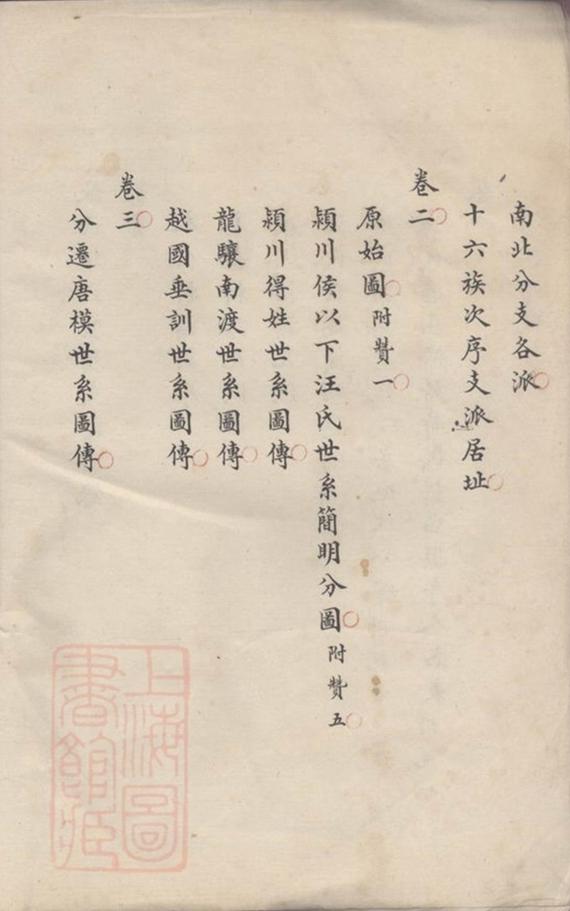 南北分支各派
十六族次序支派居址
卷二
原始圖附贊一
潁川侯以下汪氏世系簡明分圖附贊五
潁川得姓世系圖傳
龍驤南渡世系圖傳
越國垂訓世系圖傳
卷三
分遷唐模世系圖傳
上海圖
書館藏